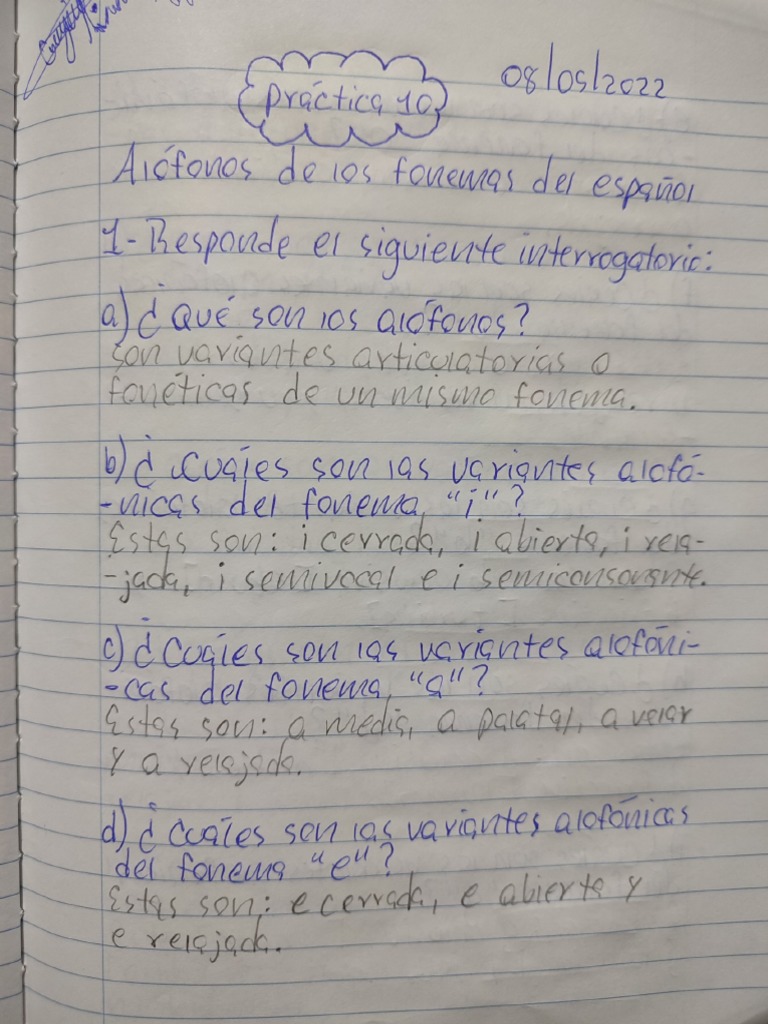 Práctica 10
08/05/2022
Alófonos de los fonemas del español
1- Responde el siguiente interrogatorio:
a) ¿Qué son los alófonos?
Son variantes articulatorias o
fonéticas de un mismo fonema.
b) ¿Cuáles son las variantes alofó-
-nicas del fonema "i"?
Estas son: i cerrada, i abierta, i rela-
-jada, i semivocal e i semiconsonante.
c) ¿Cuáles son las variantes alofóni-
-cas del fonema "a"?
Estas son: a media, a palatal, a velar
y a relajada.
d) ¿Cuáles son las variantes alofónicas
del fonema "e"?
Estas son: e cerrada, e abierta y
e relajada.